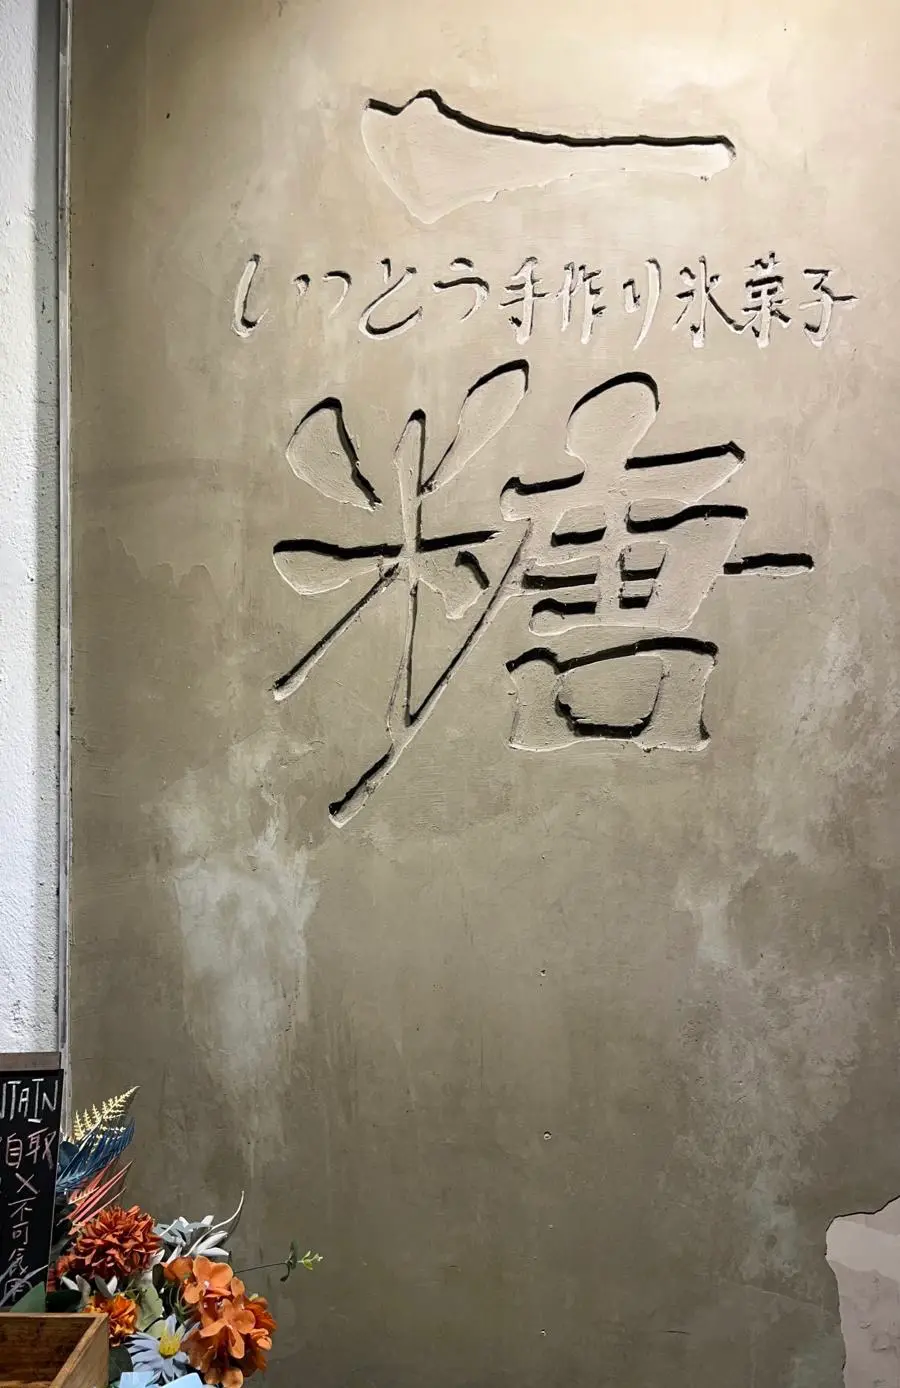 一
いっとう手作り氷菓子
糖
NTAIN
自取
×不可